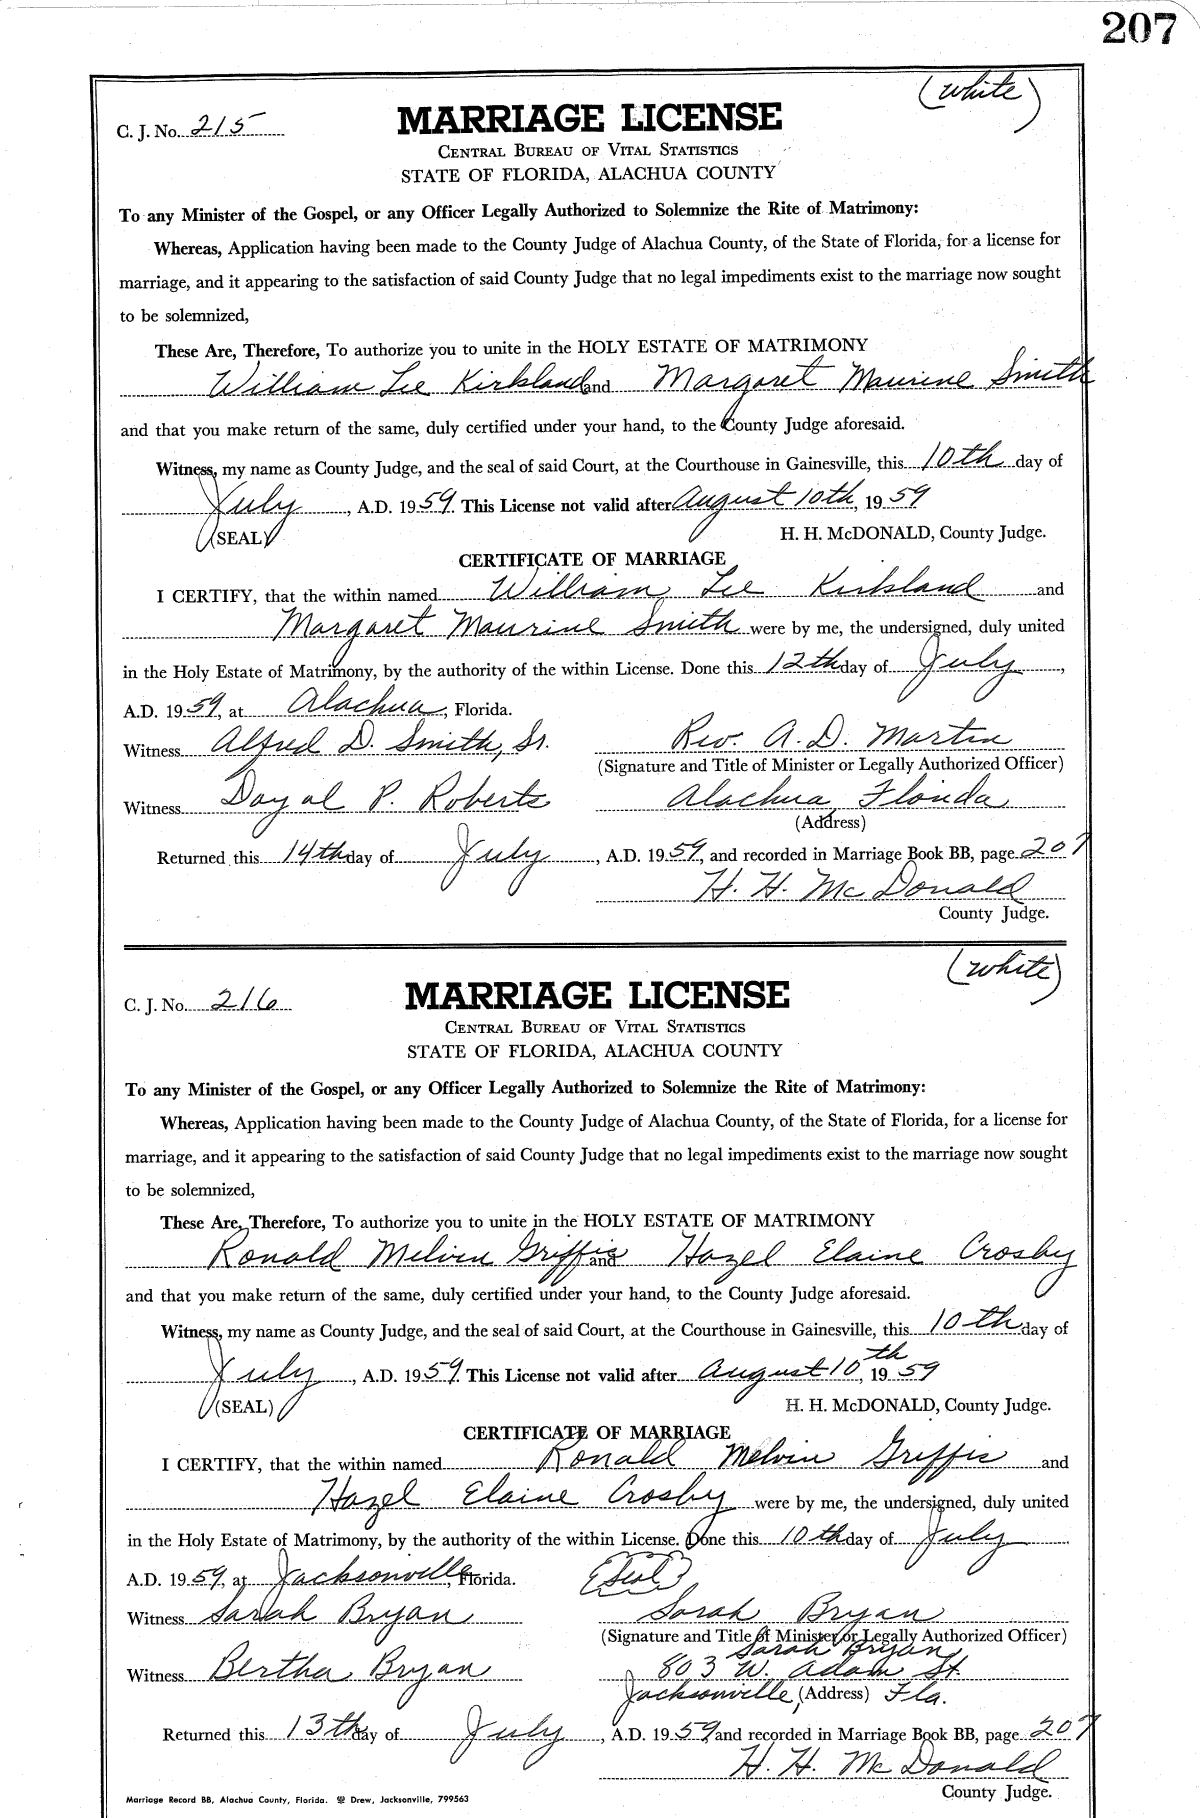 207
(white)
C. J. No. 215
MARRIAGE LICENSE
CENTRAL BUREAU OF VITAL STATISTICS
STATE OF FLORIDA, ALACHUA COUNTY
To any Minister of the Gospel, or any Officer Legally Authorized to Solemnize the Rite of Matrimony:
Whereas, Application having been made to the County Judge of Alachua County, of the State of Florida, for a license for
marriage, and it appearing to the satisfaction of said County Judge that no legal impediments exist to the marriage now sought
to be solemnized,
These Are, Therefore, To authorize you to unite in the HOLY ESTATE OF MATRIMONY
William Lee Kirkland and Margaret Maurine Smith
and that you make return of the same, duly certified under your hand, to the County Judge aforesaid.
Witness, my name as County Judge, and the seal of said Court, at the Courthouse in Gainesville, this 10th day of
July, A.D. 1959. This License not valid after August 10th, 1959
(SEAL) H. H. McDONALD, County Judge.
CERTIFICATE OF MARRIAGE
I CERTIFY, that the within named William Lee Kirkland and
Margaret Maurine Smith were by me, the undersigned, duly united
in the Holy Estate of Matrimony, by the authority of the within License. Done this 12th day of July,
A.D. 1959, at Alachua, Florida.
Witness Alfred D. Smith, Sr. Rev. A. D. Martin
(Signature and Title of Minister or Legally Authorized Officer)
Witness Doyal P. Roberts Alachua, Florida
(Address)
Returned this 14th day of July, A.D. 1959, and recorded in Marriage Book BB, page 207
H. H. McDonald
County Judge.
(white)
C. J. No. 216
MARRIAGE LICENSE
CENTRAL BUREAU OF VITAL STATISTICS
STATE OF FLORIDA, ALACHUA COUNTY
To any Minister of the Gospel, or any Officer Legally Authorized to Solemnize the Rite of Matrimony:
Whereas, Application having been made to the County Judge of Alachua County, of the State of Florida, for a license for
marriage, and it appearing to the satisfaction of said County Judge that no legal impediments exist to the marriage now sought
to be solemnized,
These Are, Therefore, To authorize you to unite in the HOLY ESTATE OF MATRIMONY
Ronald Melvin Griffis and Hazel Elaine Crosby
and that you make return of the same, duly certified under your hand, to the County Judge aforesaid.
Witness, my name as County Judge, and the seal of said Court, at the Courthouse in Gainesville, this 10th day of
July, A.D. 1959. This License not valid after August 10th, 1959
(SEAL) H. H. McDONALD, County Judge.
CERTIFICATE OF MARRIAGE
I CERTIFY, that the within named Ronald Melvin Griffis and
Hazel Elaine Crosby were by me, the undersigned, duly united
in the Holy Estate of Matrimony, by the authority of the within License. Done this 10th day of July
A.D. 1959, at Jacksonville, Florida. (Seal)
Witness Sarah Bryan Sarah Bryan
(Signature and Title of Minister or Legally Authorized Officer)
Sarah Bryan
Witness Bertha Bryan 803 W. Adam St.
Jacksonville, (Address) Fla.
Returned this 13th day of July, A.D. 1959, and recorded in Marriage Book BB, page 207
H. H. McDonald
County Judge.
Marriage Record BB, Alachua County, Florida. Drew, Jacksonville, 799563